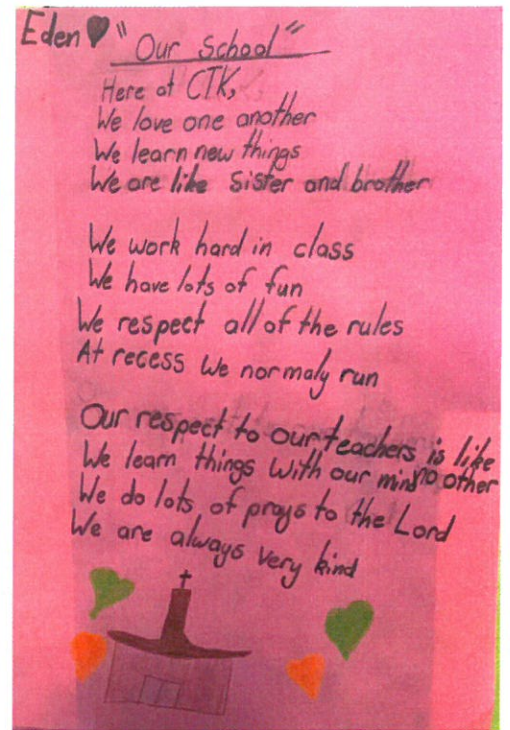 Eden ♥ "Our School"
Here at CTK,
We love one another
We learn new things
We are like sister and brother
We work hard in class
We have lots of fun
We respect all of the rules
At recess we normaly run
Our respect to our teachers is like no other
We learn things with our mind
We do lots of prays to the Lord
We are always very kind